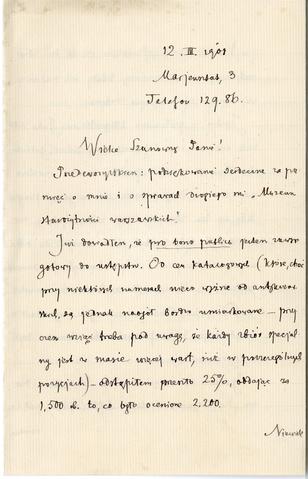 12. III. 1901
Marjensztat, 3
Telefon 129.86.
Wielce Szanowny Panie!
Przedewszystkiem: podziękowanie serdeczne za pa
mięć o mnie i o sprawach drogiego mi „Muzeum
starożytności warszawskich"!
Już dowiodłem, że pro bono publico jestem zawsze
gotowy do ustępstw. Od cen katalogowych (które, choć
przy niektórych numerach nieco wyższe od antykwar
skich, są jednak naogół bardzo umiarkowane – przy
czem wziąć trzeba pod uwagę, że każdy zbiór specjal
ny jest w masie więcej wart, niż w poszczególnych
pozycjach) – odstąpiłem przeszło 25%, oddając za
1,500 rb. to, co było ocenione 2,200.